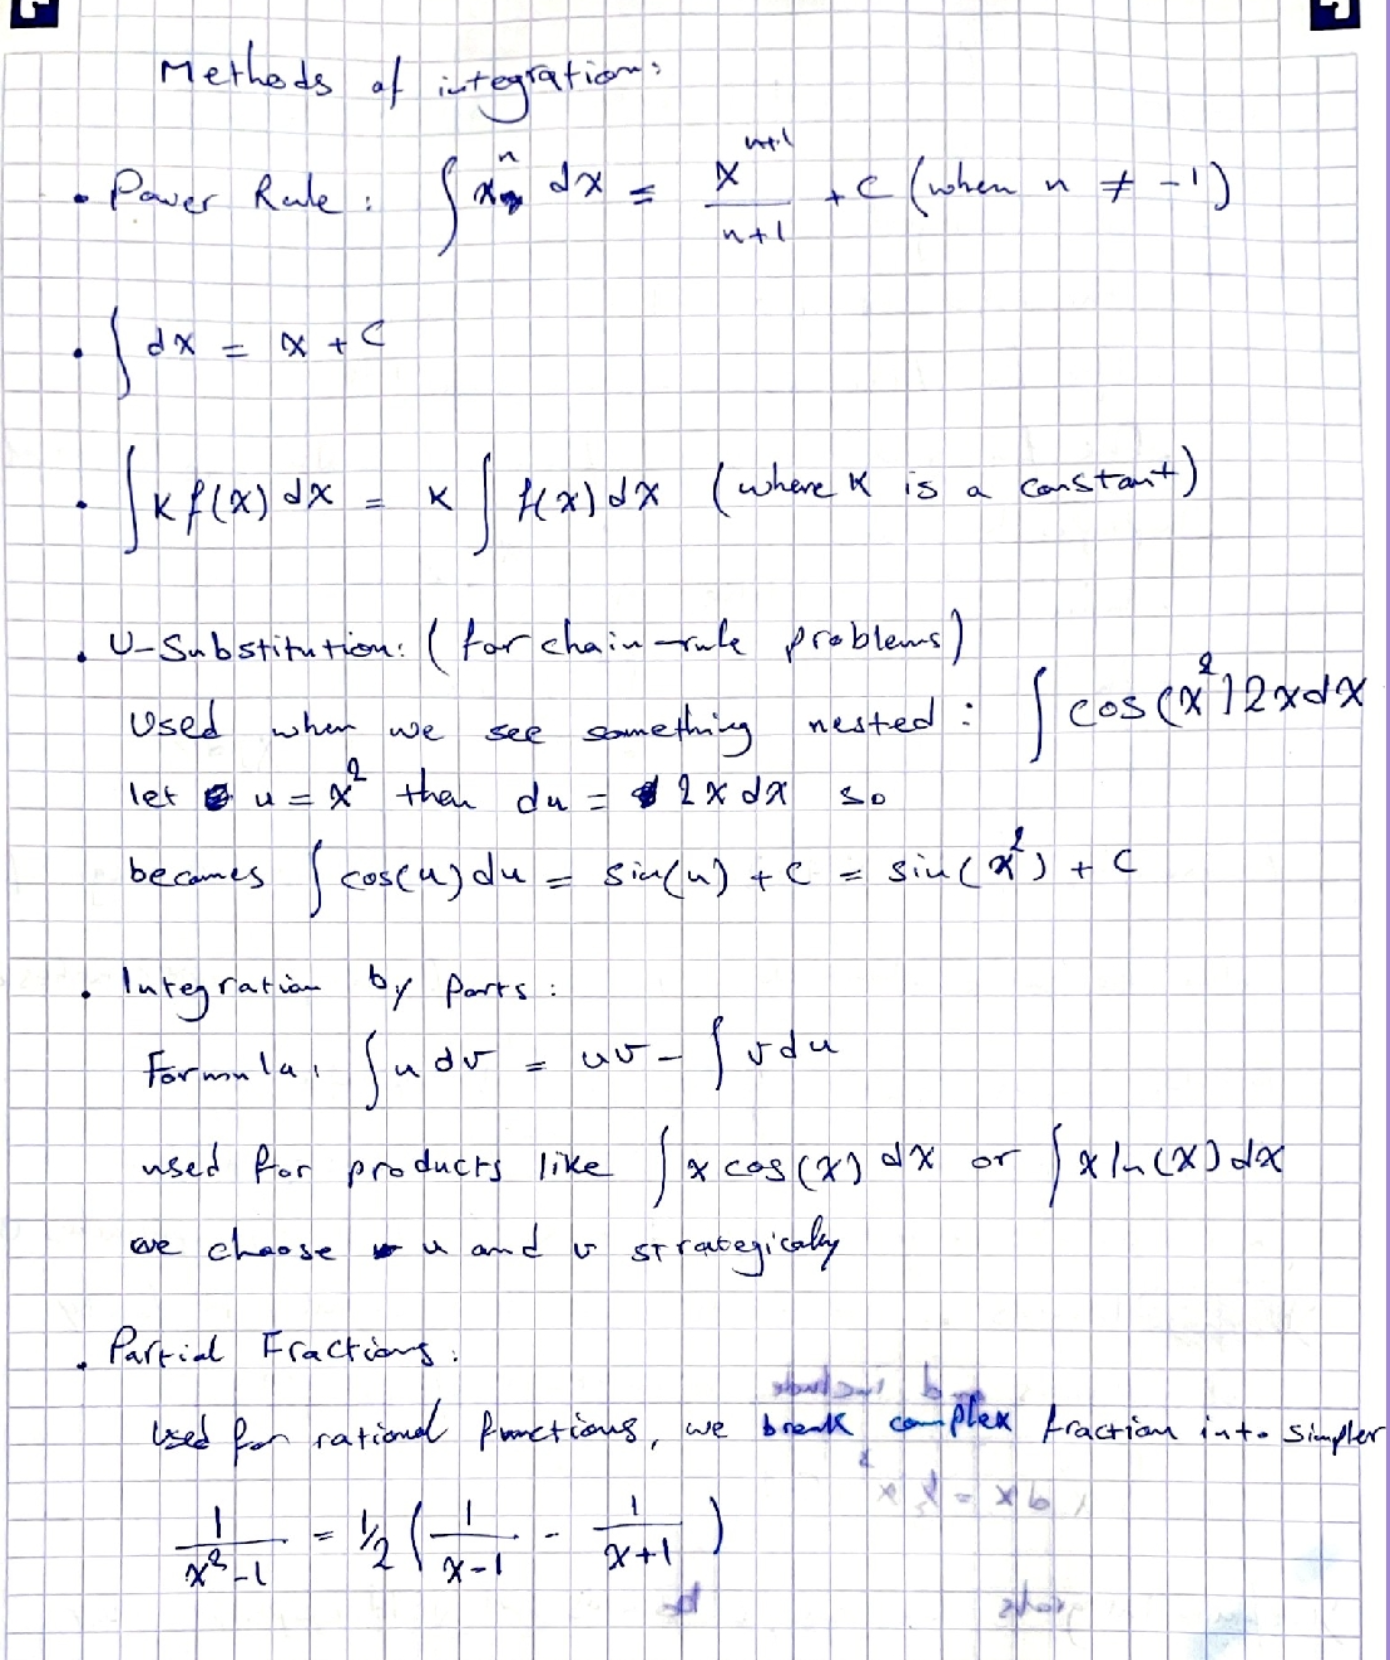 Methods of integration:
• Power Rule: ∫ xⁿ dx = xⁿ⁺¹/(n+1) + C (when n ≠ -1)
• ∫ dx = x + C
• ∫ K f(x) dx = K ∫ f(x) dx (where K is a constant)
• U-Substitution: (for chain-rule problems)
Used when we see something nested: ∫ cos(x²) 2x dx
let u = x² then du = 2x dx so
becomes ∫ cos(u) du = sin(u) + C = sin(x²) + C
• Integration by parts:
Formula: ∫ u dv = uv - ∫ v du
used for products like ∫ x cos(x) dx or ∫ x ln(x) dx
we choose u and v strategicaly
• Partial Fractions:
Used for rational functions, we break complex fraction into simpler
1/(x²-1) = 1/2 (1/(x-1) - 1/(x+1))